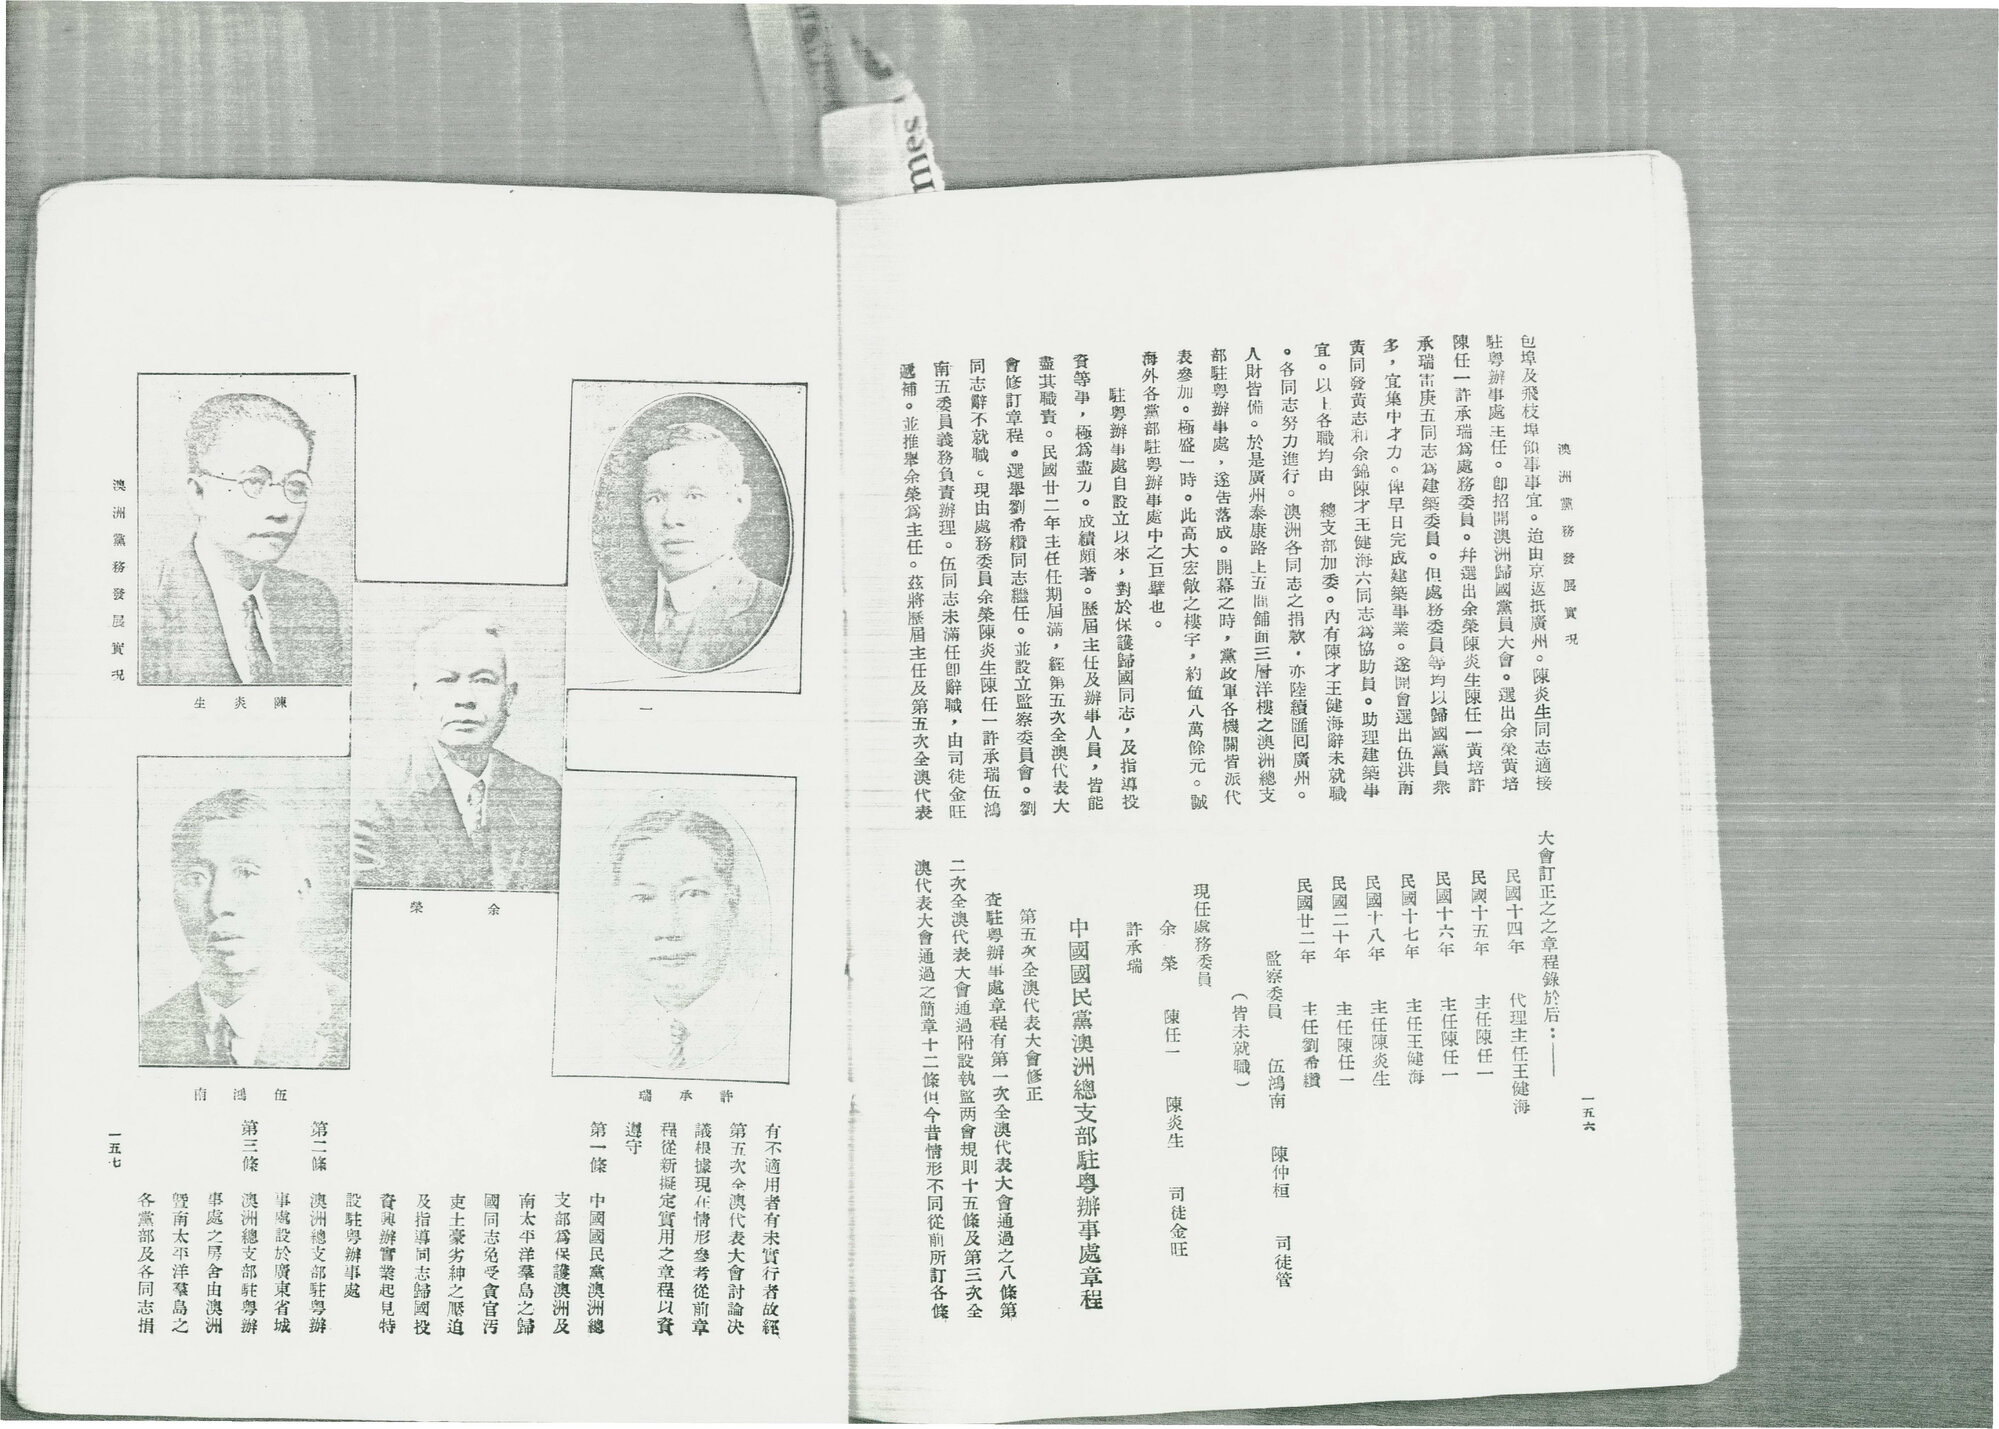 澳洲黨務發展實況
一五六
包埠及飛枝埠領事事宜。迨由京返抵廣州。陳炎生同志適接
駐粤辦事處主任。卽招開澳洲歸國黨員大會。選出余榮黃培
陳任一許承瑞爲處務委員。幷選出余榮陳炎生陳任一黃培許
承瑞雷庚五同志爲建築委員。但處務委員等均以歸國黨員衆
多，宜集中才力。俾早日完成建築事業。遂開會選出伍洪南
黃同發黃志和余錦陳才王健海六同志爲協助員。助理建築事
宜。以上各職均由　總支部加委。內有陳才王健海辭未就職
。各同志努力進行。澳洲各同志之捐欵，亦陸續匯囘廣州。
人財皆備。於是廣州泰康路上五間舖面三層洋樓之澳洲總支
部駐粤辦事處，遂告落成。開幕之時，黨政軍各機關皆派代
表參加。極盛一時。此高大宏敞之樓宇，約値八萬餘元。誠
海外各黨部駐粤辦事處中之巨擘也。
駐粤辦事處自設立以來，對於保護歸國同志，及指導投
資等事，極爲盡力。成績頗著。歷屆主任及辦事人員，皆能
盡其職責。民國廿二年主任任期屆滿，經第五次全澳代表大
會修訂章程。選舉劉希纘同志繼任。並設立監察委員會。劉
同志辭不就職。現由處務委員余榮陳炎生陳任一許承瑞伍鴻
南五委員義務負責辦理。伍同志未滿任卽辭職，由司徒金旺
遞補。並推舉余榮爲主任。茲將歷屆主任及第五次全澳代表
大會訂正之之章程錄於后：——
民國十四年　代理主任王健海
民國十五年　主任陳任一
民國十六年　主任陳任一
民國十七年　主任王健海
民國十八年　主任陳炎生
民國二十年　主任陳任一
民國廿二年　主任劉希纘
監察委員　伍鴻南　陳仲桓　司徒管
（皆未就職）
現任處務委員
余榮　陳任一　陳炎生　司徒金旺
許承瑞
中國國民黨澳洲總支部駐粤辦事處章程
第五次全澳代表大會修正
查駐粤辦事處章程有第一次全澳代表大會通過之八條第
二次全澳代表大會通過附設執監两會規則十五條及第三次全
澳代表大會通過之簡章十二條但今昔情形不同從前所訂各條
一
許承瑞
余榮
陳炎生
伍鴻南
有不適用者有未實行者故經
第五次全澳代表大會討論决
議根據現在情形參考從前章
程從新擬定實用之章程以資
遵守
第一條　中國國民黨澳洲總
支部爲保護澳洲及
南太平洋羣島之歸
國同志免受貪官汚
吏土豪劣紳之壓迫
及指導同志歸國投
資興辦實業起見特
設駐粤辦事處
第二條　澳洲總支部駐粤辦
事處設於廣東省城
第三條　澳洲總支部駐粤辦
事處之房舍由澳洲
曁南太平洋羣島之
各黨部及各同志捐
澳洲黨務發展實況
一五七
mes